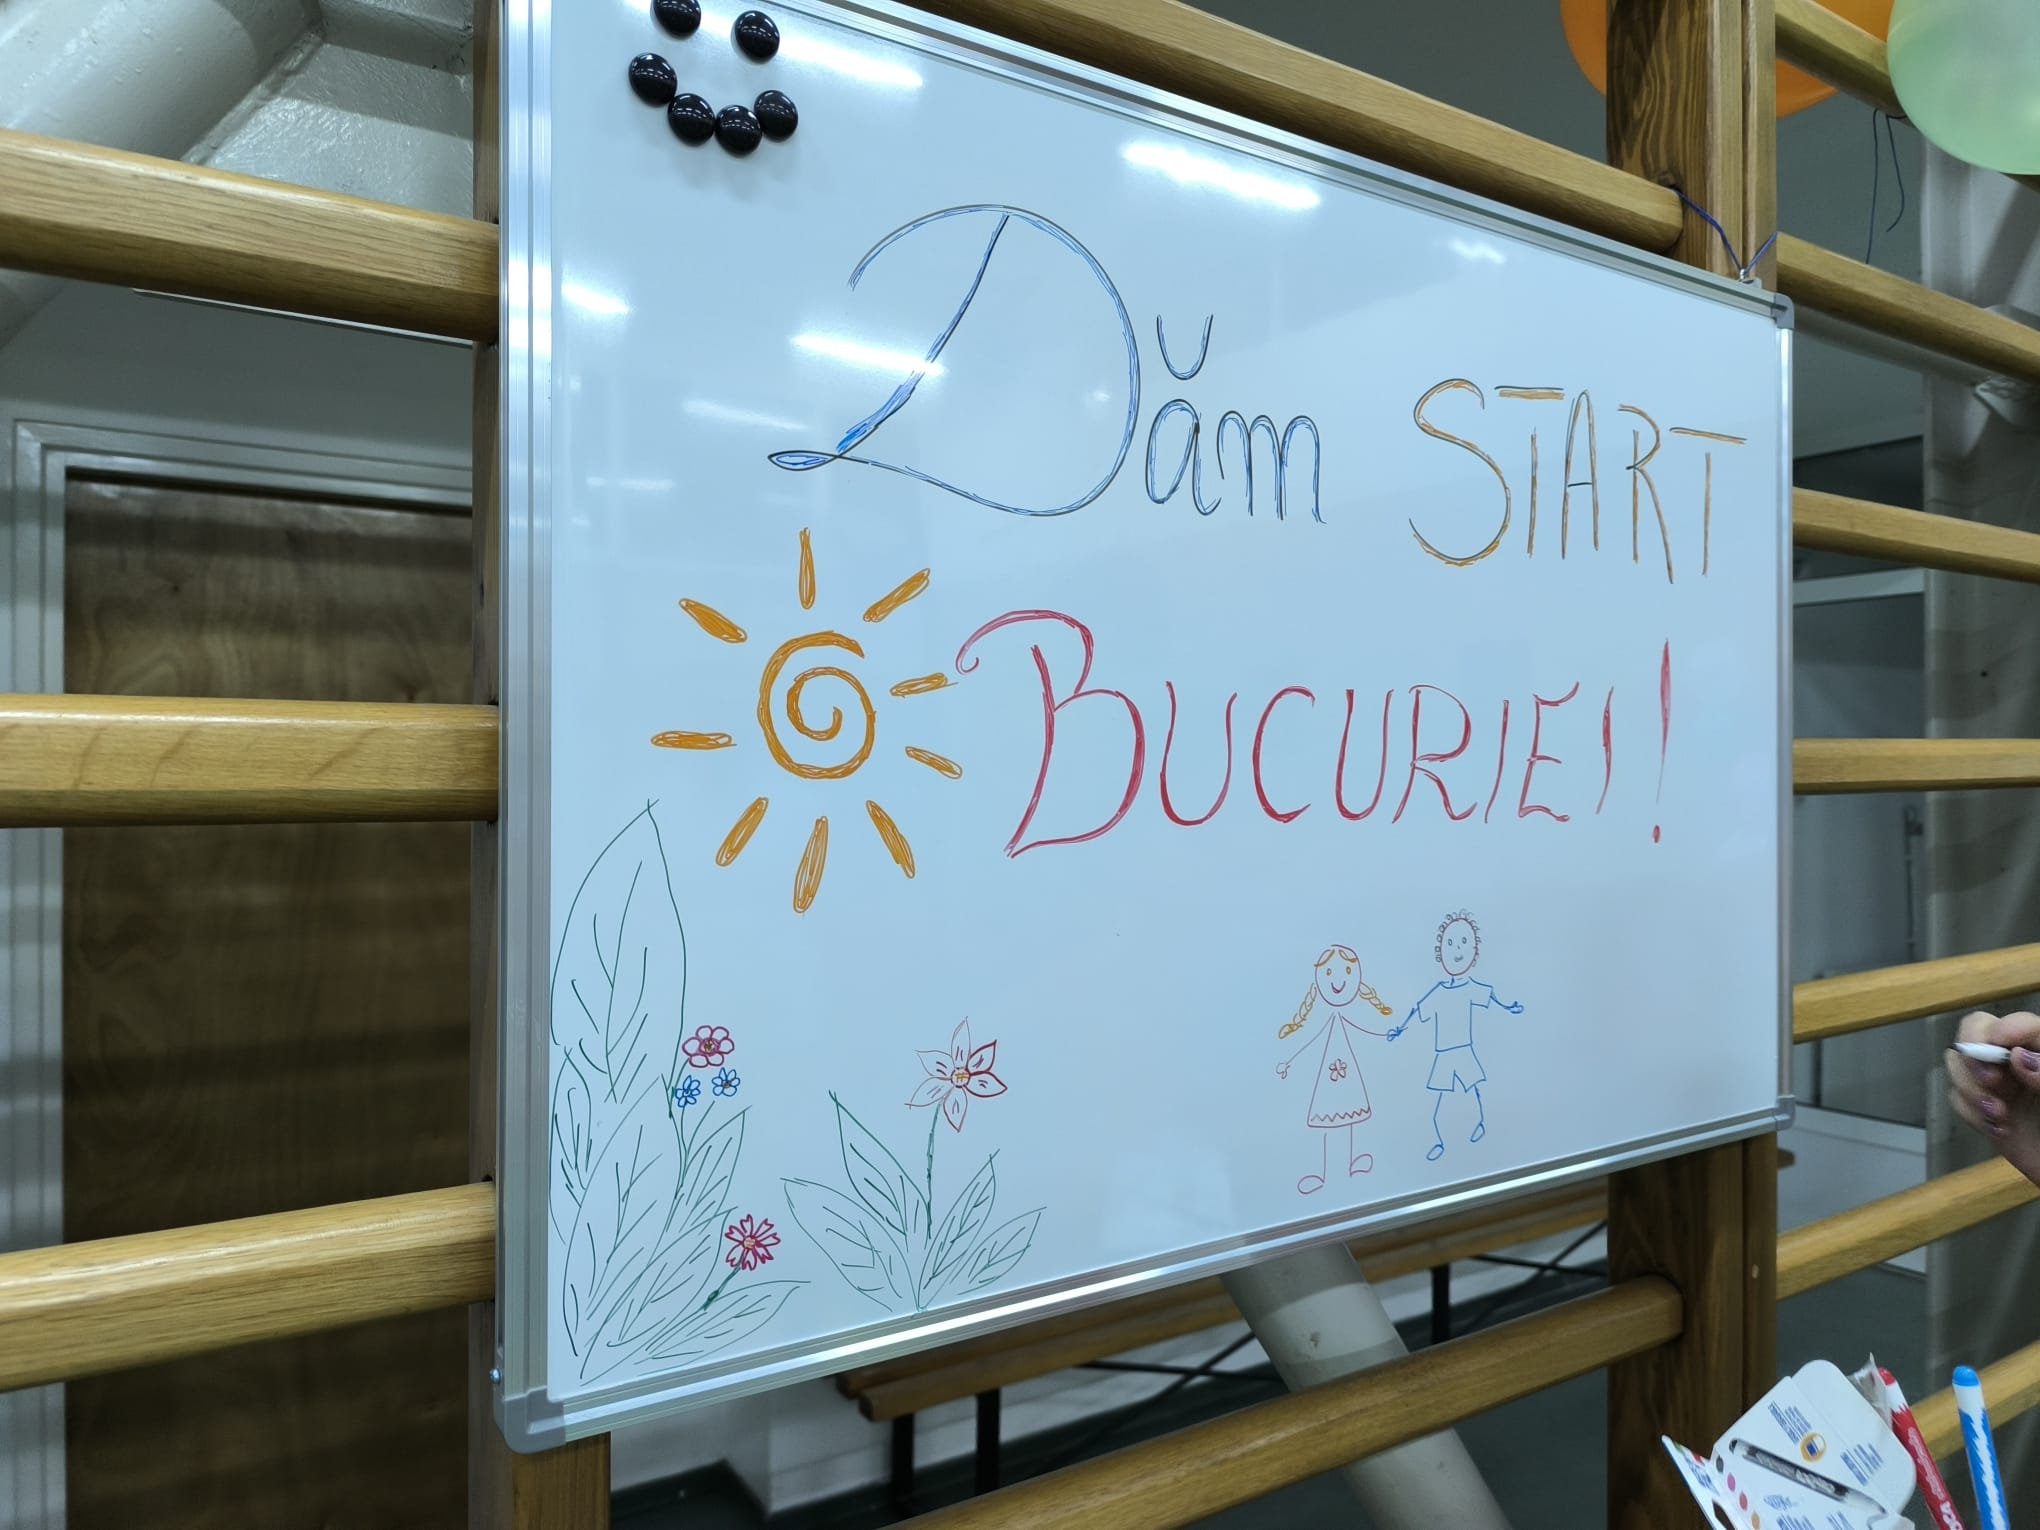 Dăm START
BUCURIEI!